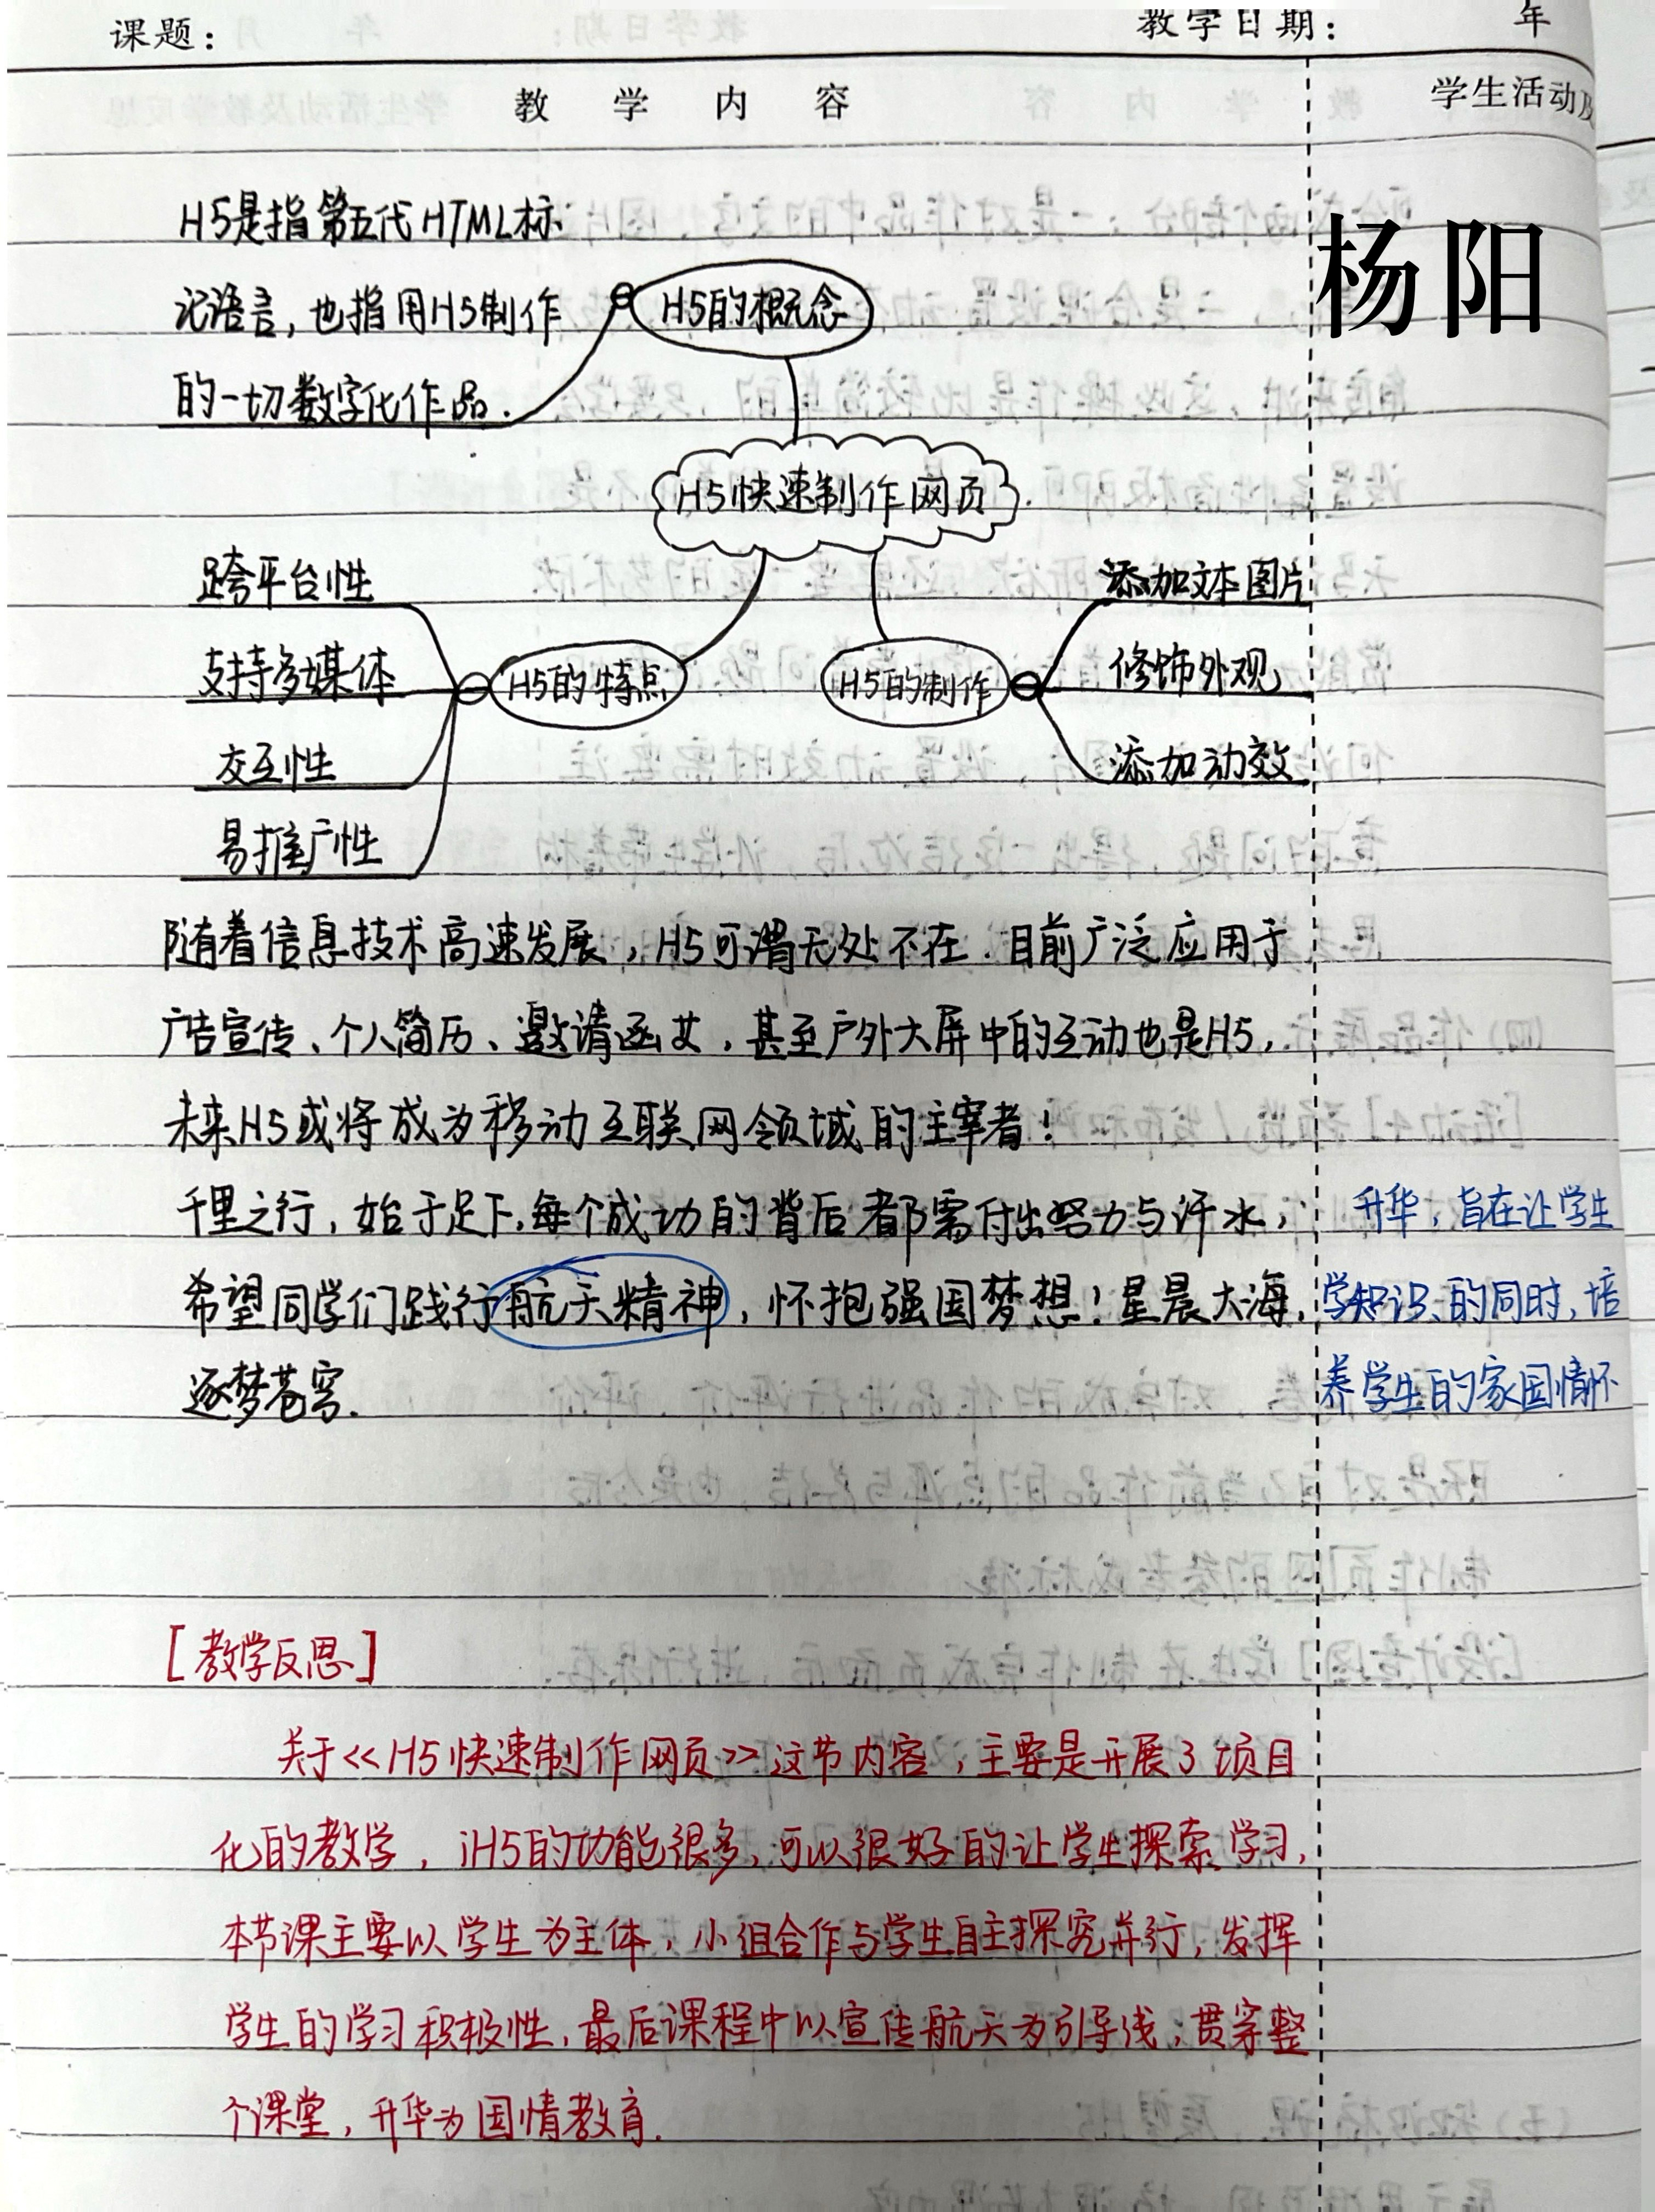 课题：
教学日期：
年
教 学 内 容
学生活动及
杨阳
H5是指第五代HTML标
记语言，也指用H5制作
的一切数字化作品.
H5的概念
H5快速制作网页
跨平台性
支持多媒体
交互性
易推广性
H5的特点
H5的制作
添加文本图片
修饰外观
添加动效
随着信息技术高速发展，H5可谓无处不在.目前广泛应用于
广告宣传、个人简历、邀请函文，甚至户外大屏中的互动也是H5，
未来H5或将成为移动互联网领域的主宰者！
千里之行，始于足下，每个成功的背后都需付出努力与汗水，
希望同学们践行航天精神，怀抱强国梦想！星晨大海，
逐梦苍穹.
升华，旨在让学生
学知识的同时，培
养学生的家国情怀
[教学反思]
关于<<H5快速制作网页>>这节内容，主要是开展了项目
化的教学，iH5的功能很多，可以很好的让学生探索学习，
本节课主要以学生为主体，小组合作与学生自主探究并行，发挥
学生的学习积极性，最后课程中以宣传航天为引导线，贯穿整
个课堂，升华为国情教育.